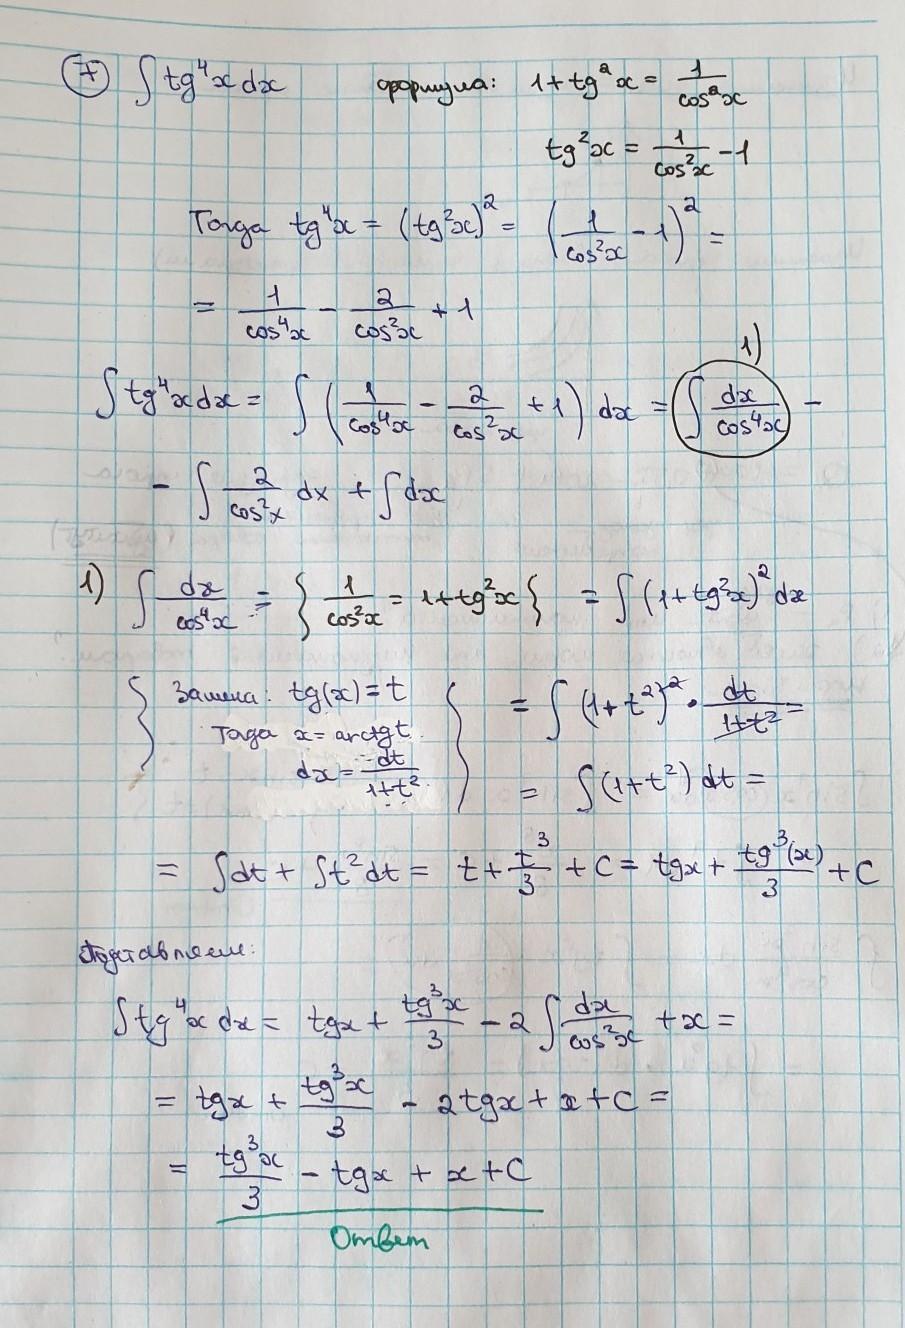 7 ∫ tg⁴x dx формула: 1 + tg²x = 1/cos²x
tg²x = 1/cos²x - 1
Тогда tg⁴x = (tg²x)² = (1/cos²x - 1)² =
= 1/cos⁴x - 2/cos²x + 1
1)
∫ tg⁴x dx = ∫ (1/cos⁴x - 2/cos²x + 1) dx = ∫ dx/cos⁴x -
- ∫ 2/cos²x dx + ∫ dx
1) ∫ dx/cos⁴x = { 1/cos²x = 1 + tg²x } = ∫ (1 + tg²x)² dx
{ Замена: tg(x) = t
Тогда x = arctg t
dx = dt/(1+t²) }
= ∫ (1 + t²)² · dt/(1+t²) =
= ∫ (1 + t²) dt =
= ∫ dt + ∫ t² dt = t + t³/3 + C = tgx + tg³(x)/3 + C
Подставляем:
∫ tg⁴x dx = tgx + tg³x/3 - 2 ∫ dx/cos²x + x =
= tgx + tg³x/3 - 2tgx + x + C =
= tg³x/3 - tgx + x + C
Ответ